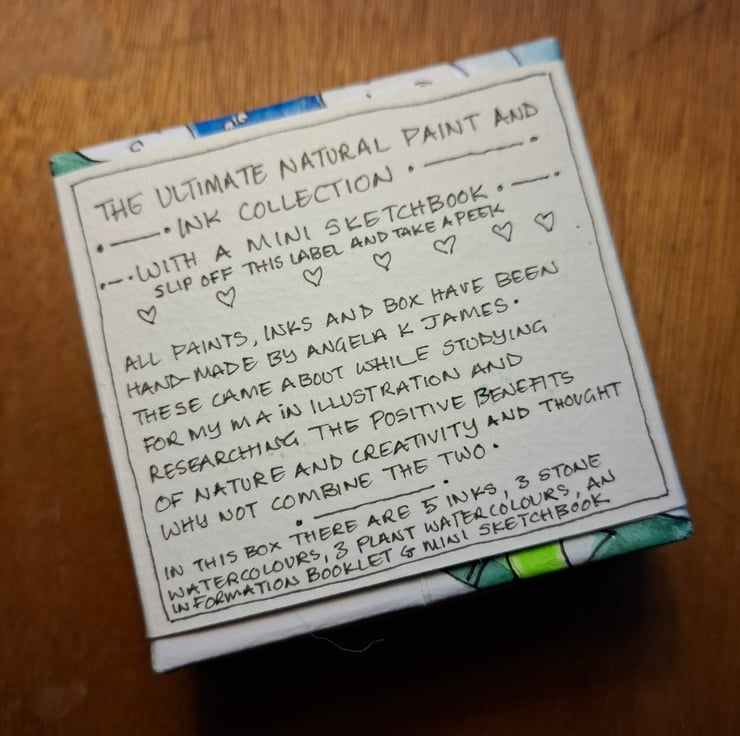 THE ULTIMATE NATURAL PAINT AND
INK COLLECTION
WITH A MINI SKETCHBOOK
SLIP OFF THIS LABEL AND TAKE A PEEK
ALL PAINTS, INKS AND BOX HAVE BEEN
HAND-MADE BY ANGELA K JAMES.
THESE CAME ABOUT WHILE STUDYING
FOR MY MA IN ILLUSTRATION AND
RESEARCHING THE POSITIVE BENEFITS
OF NATURE AND CREATIVITY AND THOUGHT
WHY NOT COMBINE THE TWO.
IN THIS BOX THERE ARE 5 INKS, 3 STONE
WATERCOLOURS, 3 PLANT WATERCOLOURS, AN
INFORMATION BOOKLET & MINI SKETCHBOOK